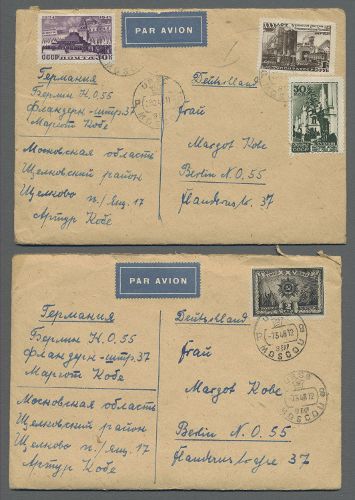 PAR AVION
СССР
30
СССР
MOSCOU
Германия
Берлин N.O.55
Фландерн-штр.37
Маргот Кобе
Московская область
Щелковский район
Щелково п/ящ. 17
Артур Кобе
Deutschland
Frau
Margot Kobe
Berlin N.O.55
Flandernstr. 37
PAR AVION
2
MOSCOU
-7.5.48.12
Германия
Берлин N.O.55
Фландерн-штр.37
Маргот Кобе
Московская область
Щелковский район
Щелково п/ящ. 17
Артур Кобе
Deutschland
Frau
Margot Kobe
Berlin N.O.55
Flandernstraße 37
-7.5.48.12
MOSCOU